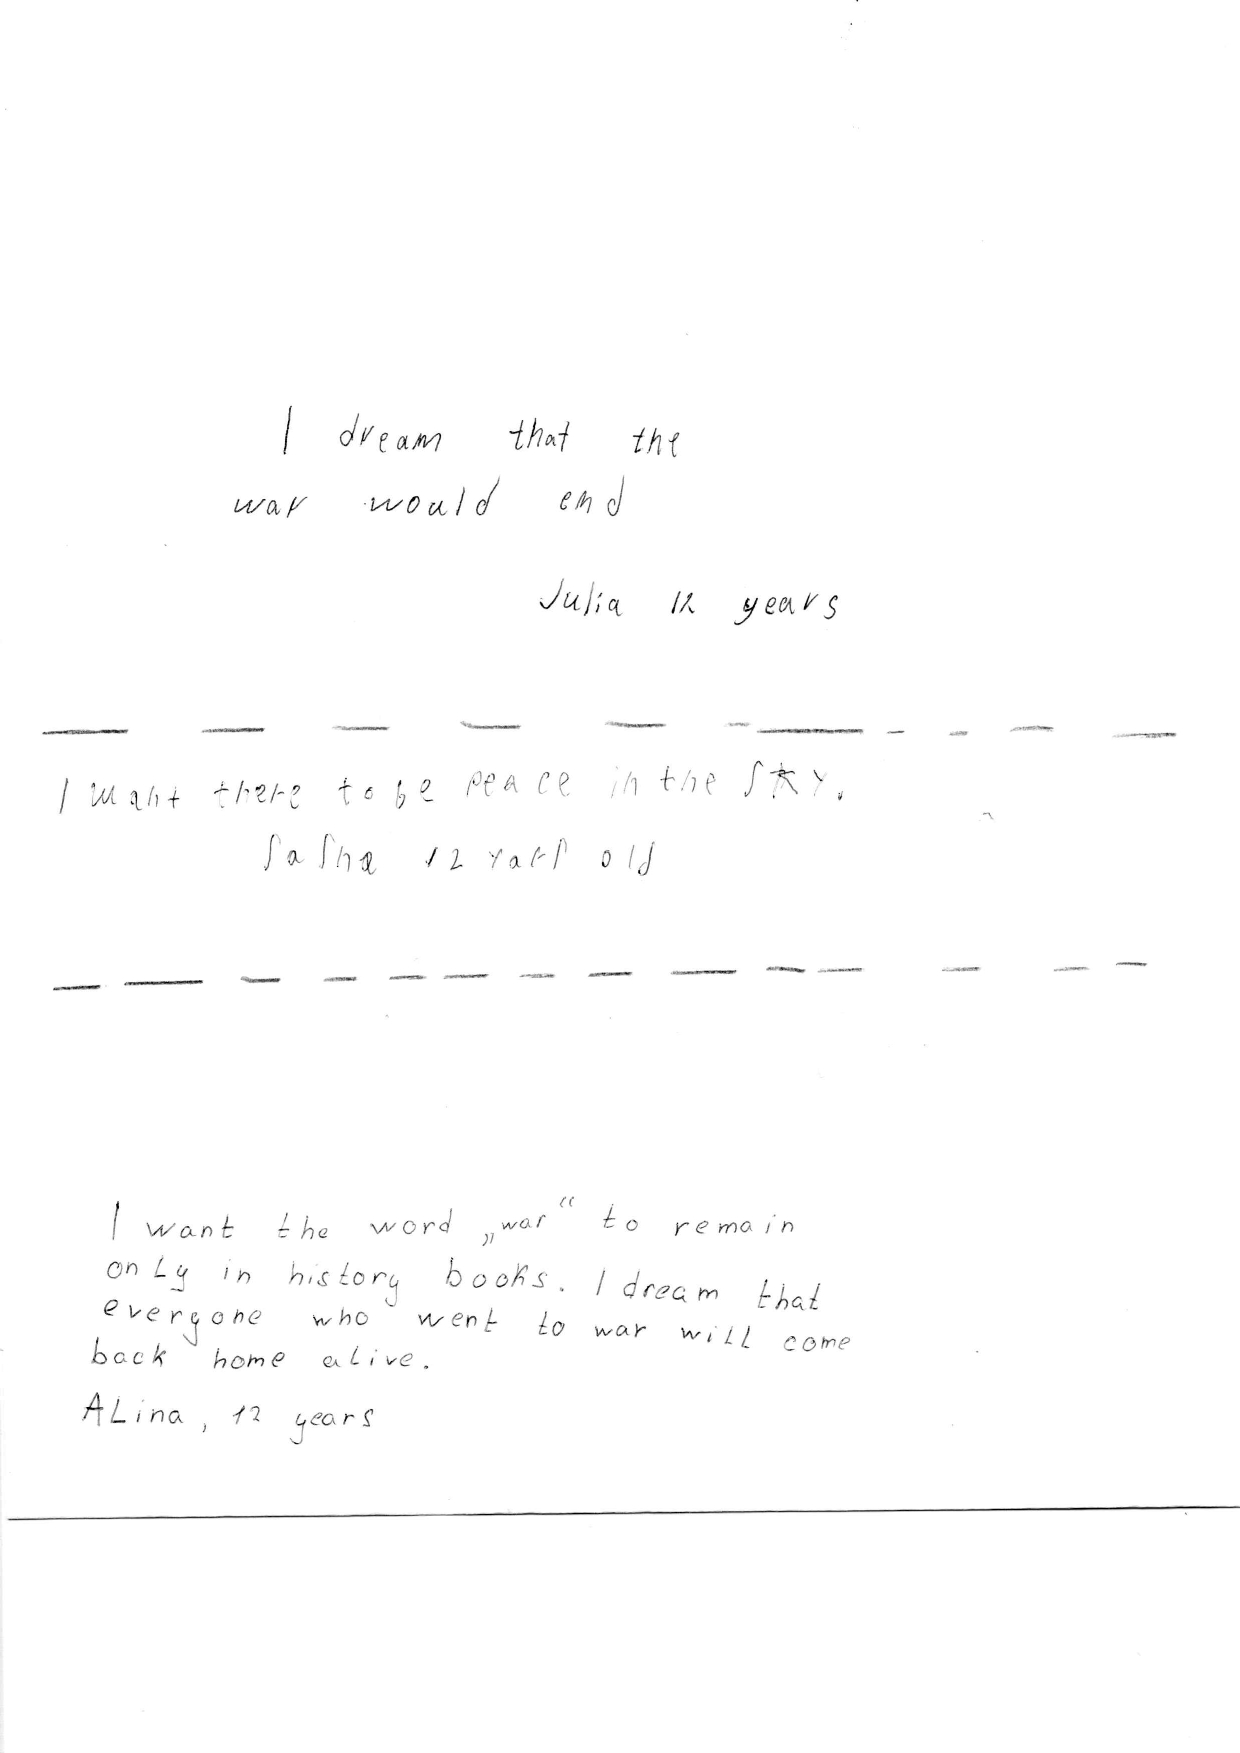 I dream that the
war would end
Julia 12 years
I want there to be peace in the sky.
Sasha 12 yars old
I want the word „war“ to remain
only in history books. I dream that
everyone who went to war will come
back home alive.
ALina, 12 years